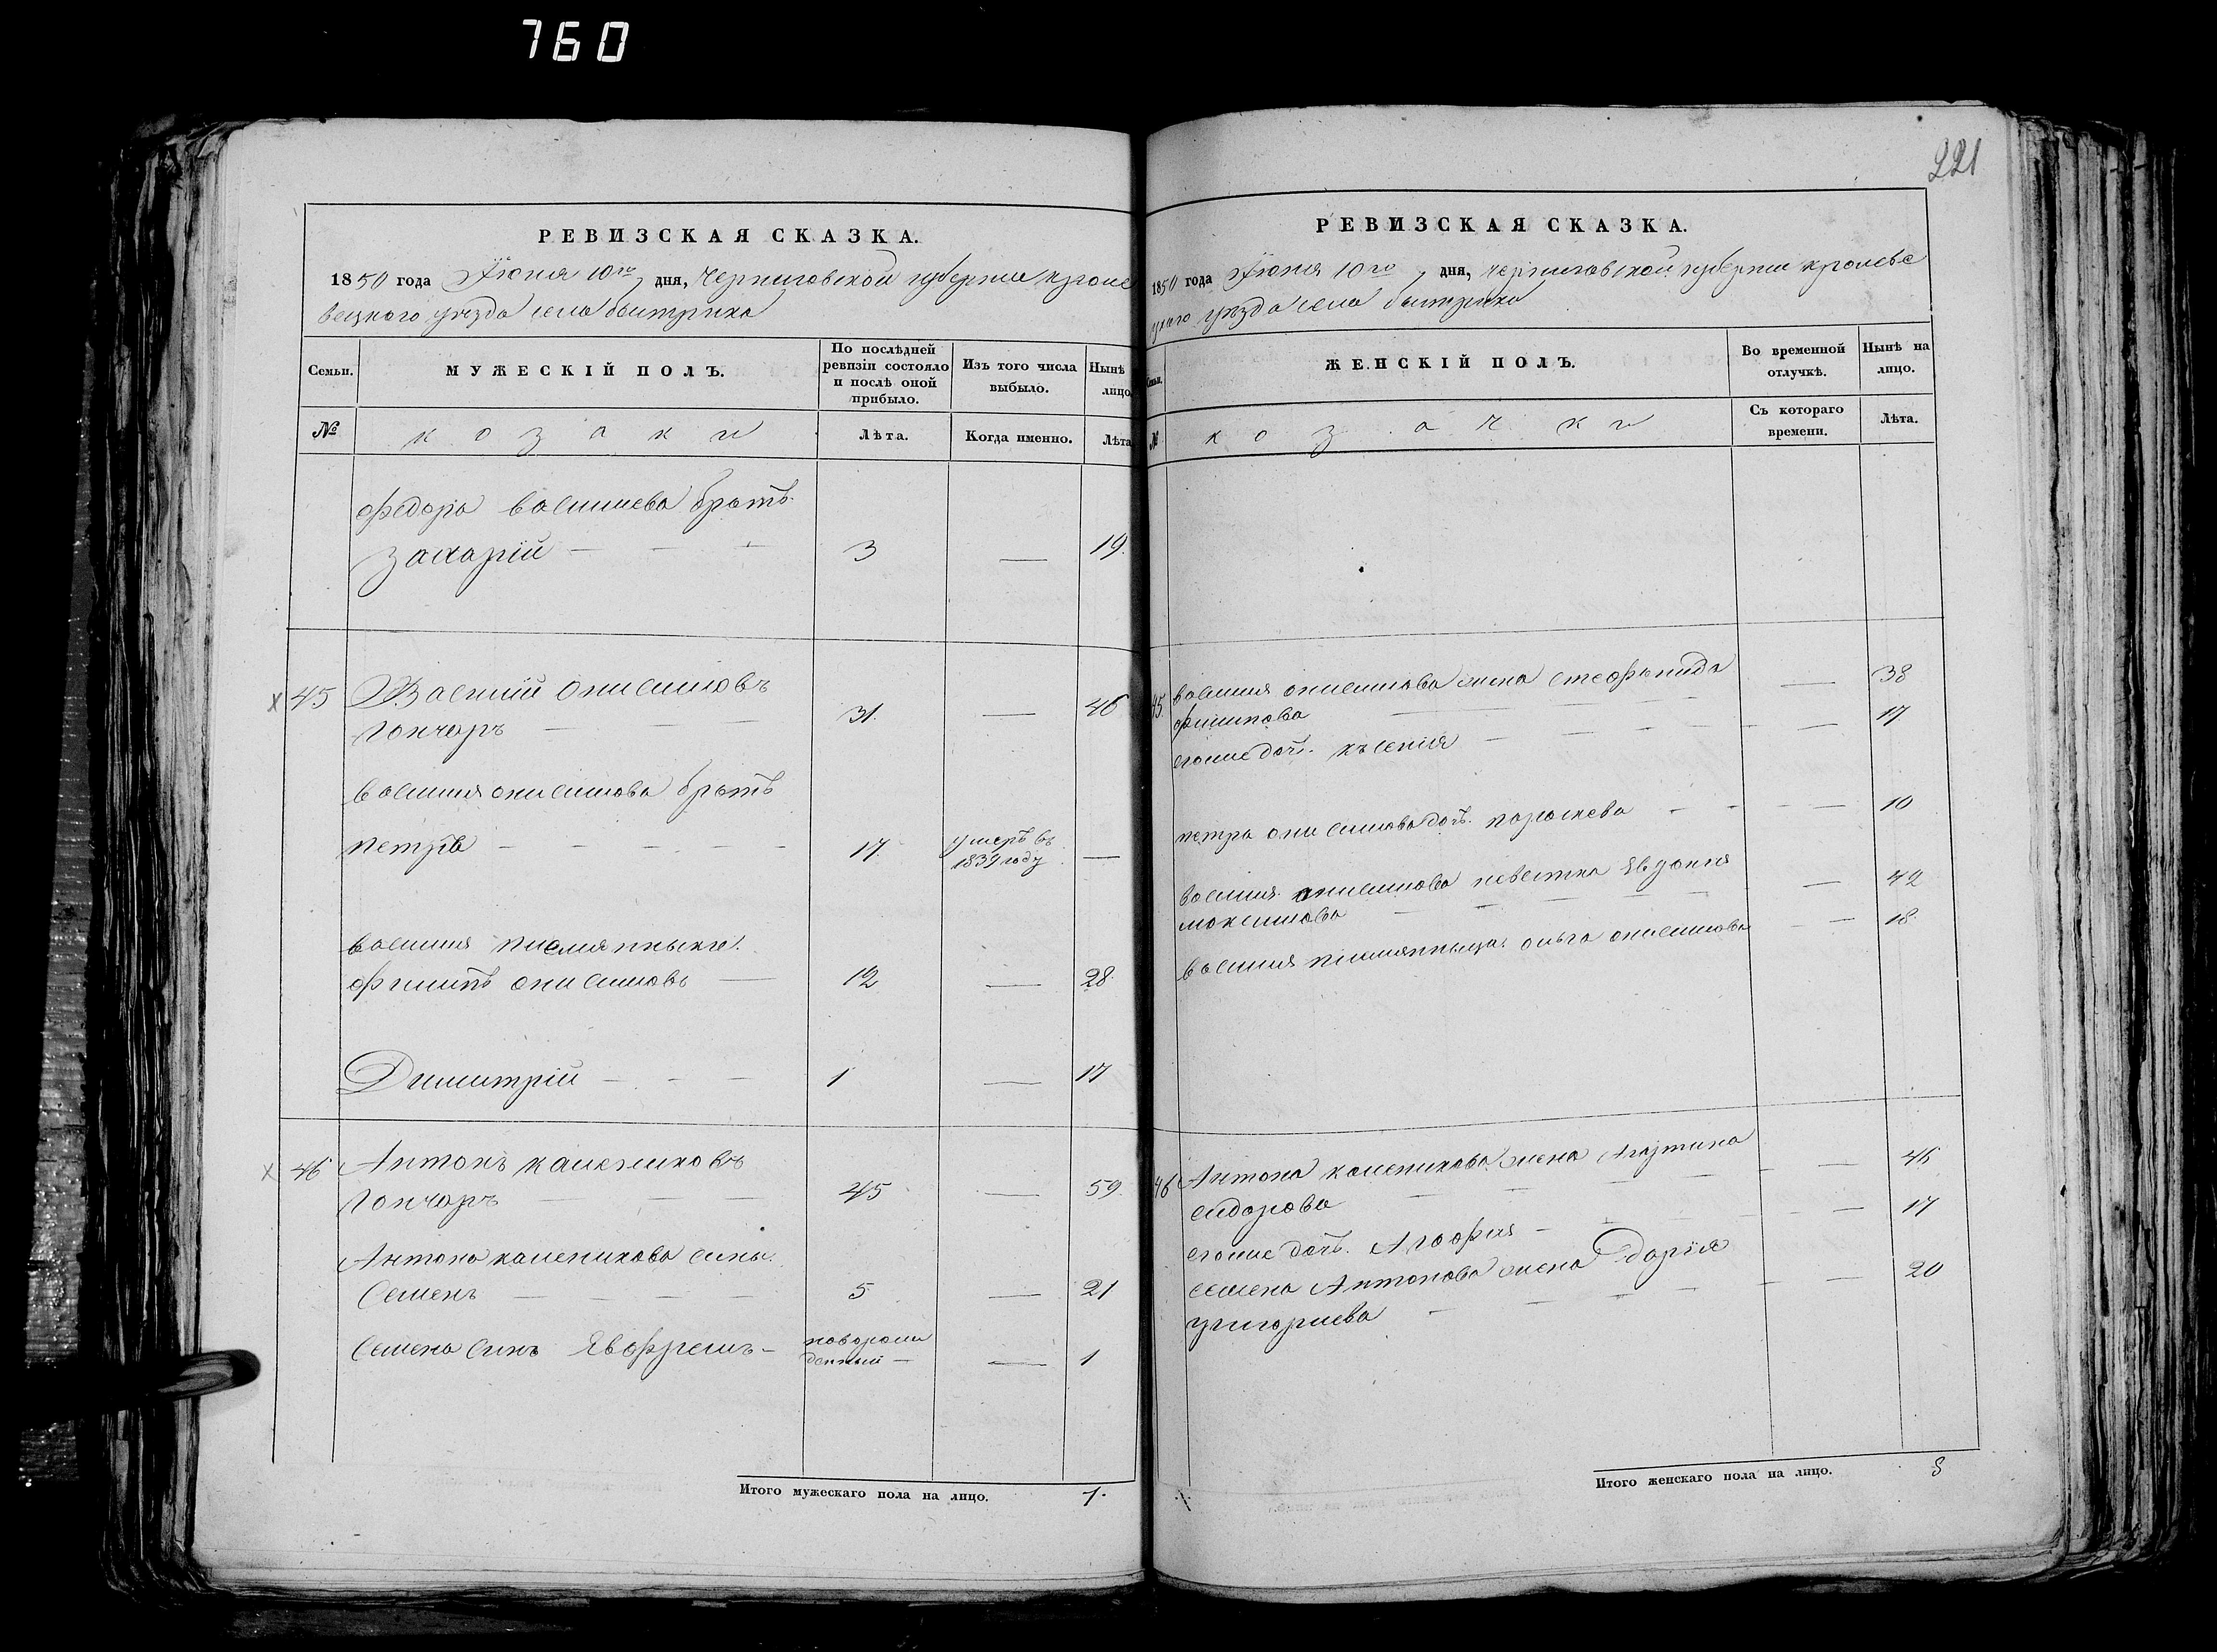 760
РЕВИЗСКАЯ СКАЗКА.
1850 года Іюня 10го дня, Черниговской губерніи кроле
вецкого уезда села быстрика
Семьи.
МУЖЕСКІЙ ПОЛЪ.
По послѣдней
ревизіи состояло
и послѣ оной
прибыло.
Изъ того числа
выбыло.
Нынѣ
лицо
№
козаки
Лѣта.
Когда именно.
Лѣта
федора василиева братъ
захарій 3 — 19.
45 Василий онисимовъ
Гончаръ 31. — 46
василия онисимова братъ
петръ 17 умеръ въ
1839 году —
василия племянныки.
филипъ онисимовъ 12 — 28.
Димитрій 1 — 17
46 Антонъ калениковъ
Гончаръ 45 — 59.
Антона каленикова сины.
Семенъ 5 — 21
Семена синъ Явофремъ новорож
денный — 1
Итого мужескаго пола на лицо. 7.
221
РЕВИЗСКАЯ СКАЗКА.
1850 года Іюня 10го дня, черниговской губерніи кролеве
цкаго уезда села быстрика
Семьи.
ЖЕНСКІЙ ПОЛЪ.
Во временной
отлучкѣ.
Нынѣ на
лицо.
№
козачки
Съ котораго
времени.
Лѣта.
45 василия онисимова жена стефанида
филипова — 38
егоже дочь. ксения — 17
петра онисимова дочь. параскева — 10
василия онисимова невестка Явдокия
максимова — 42
василия племянныца. ольга онисимова — 18.
46 Антона каленикова жена Агрипина
сидорова — 46
егоже дочь. Агафия — 17
семена Антонова жена Дария
григориева — 20
Итого женскаго пола на лицо. 8